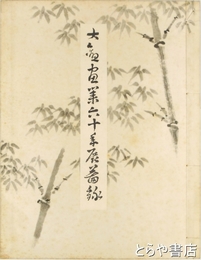 大南画業六十年展図録
とらや書店